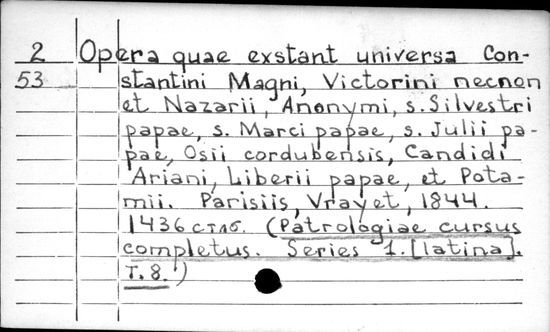 2 Opera quae exstant universa Con-
53 stantini Magni, Victorini necnon
et Nazarii, Anonymi, s. Silvestri
papae, s. Marci papae, s. Julii pa-
pae, Osii cordubensis, Candidi
Ariani, Liberii papae, et Pota-
mii. Parisiis, Vrayet, 1844.
1436 стлб. (Patrologiae cursus
completus. Series 1. [latina].
T. 8.)